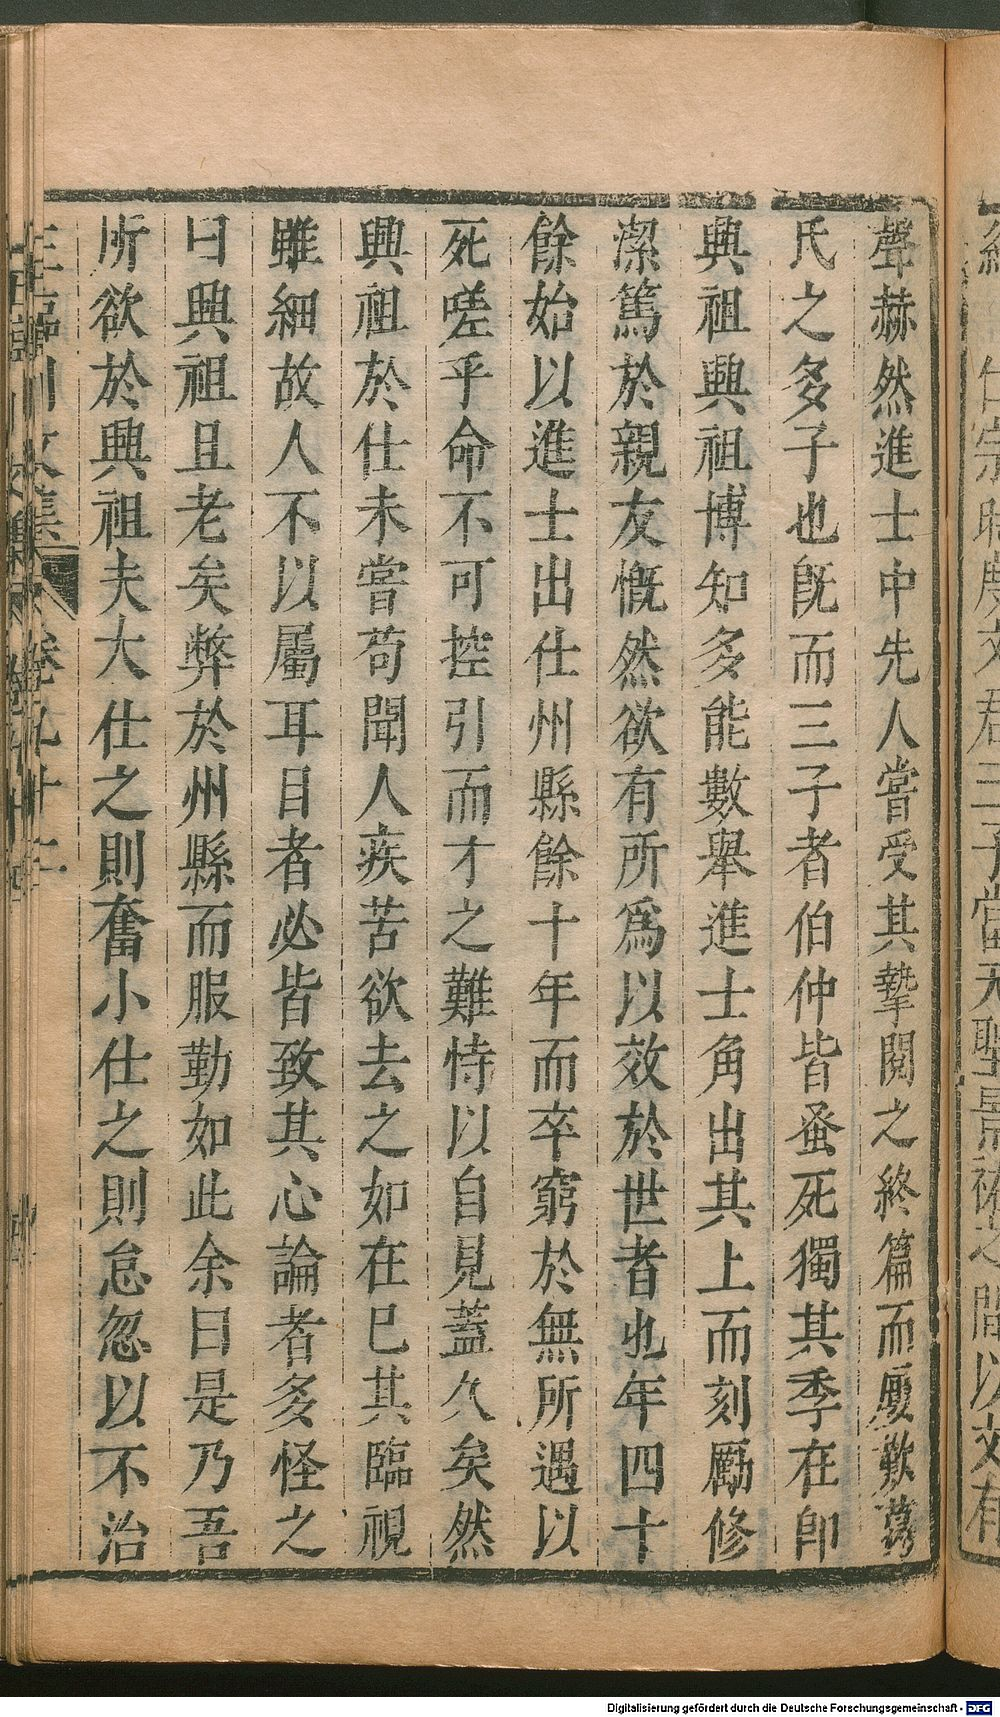 聲赫然進士中先人嘗受其摯閱之終篇而屢歎葛
氏之多子也旣而三子者伯仲皆蚤死獨其季在卽
興祖興祖博知多能數舉進士角出其上而刻勵修
潔篤於親友慨然欲有所爲以效於世者也年四十
餘始以進士出仕州縣餘十年而卒窮於無所遇以
死嗟乎命不可控引而才之難恃以自見蓋久矣然
興祖於仕未嘗苟聞人疾苦欲去之如在巳其臨視
雖細故人不以屬耳目者必皆致其心論者多怪之
曰興祖且老矣弊於州縣而服勤如此余曰是乃吾
所欲於興祖夫大仕之則奮小仕之則怠忽以不治
王臨川文集 卷九十二
Digitalisierung gefördert durch die Deutsche Forschungsgemeinschaft - DFG